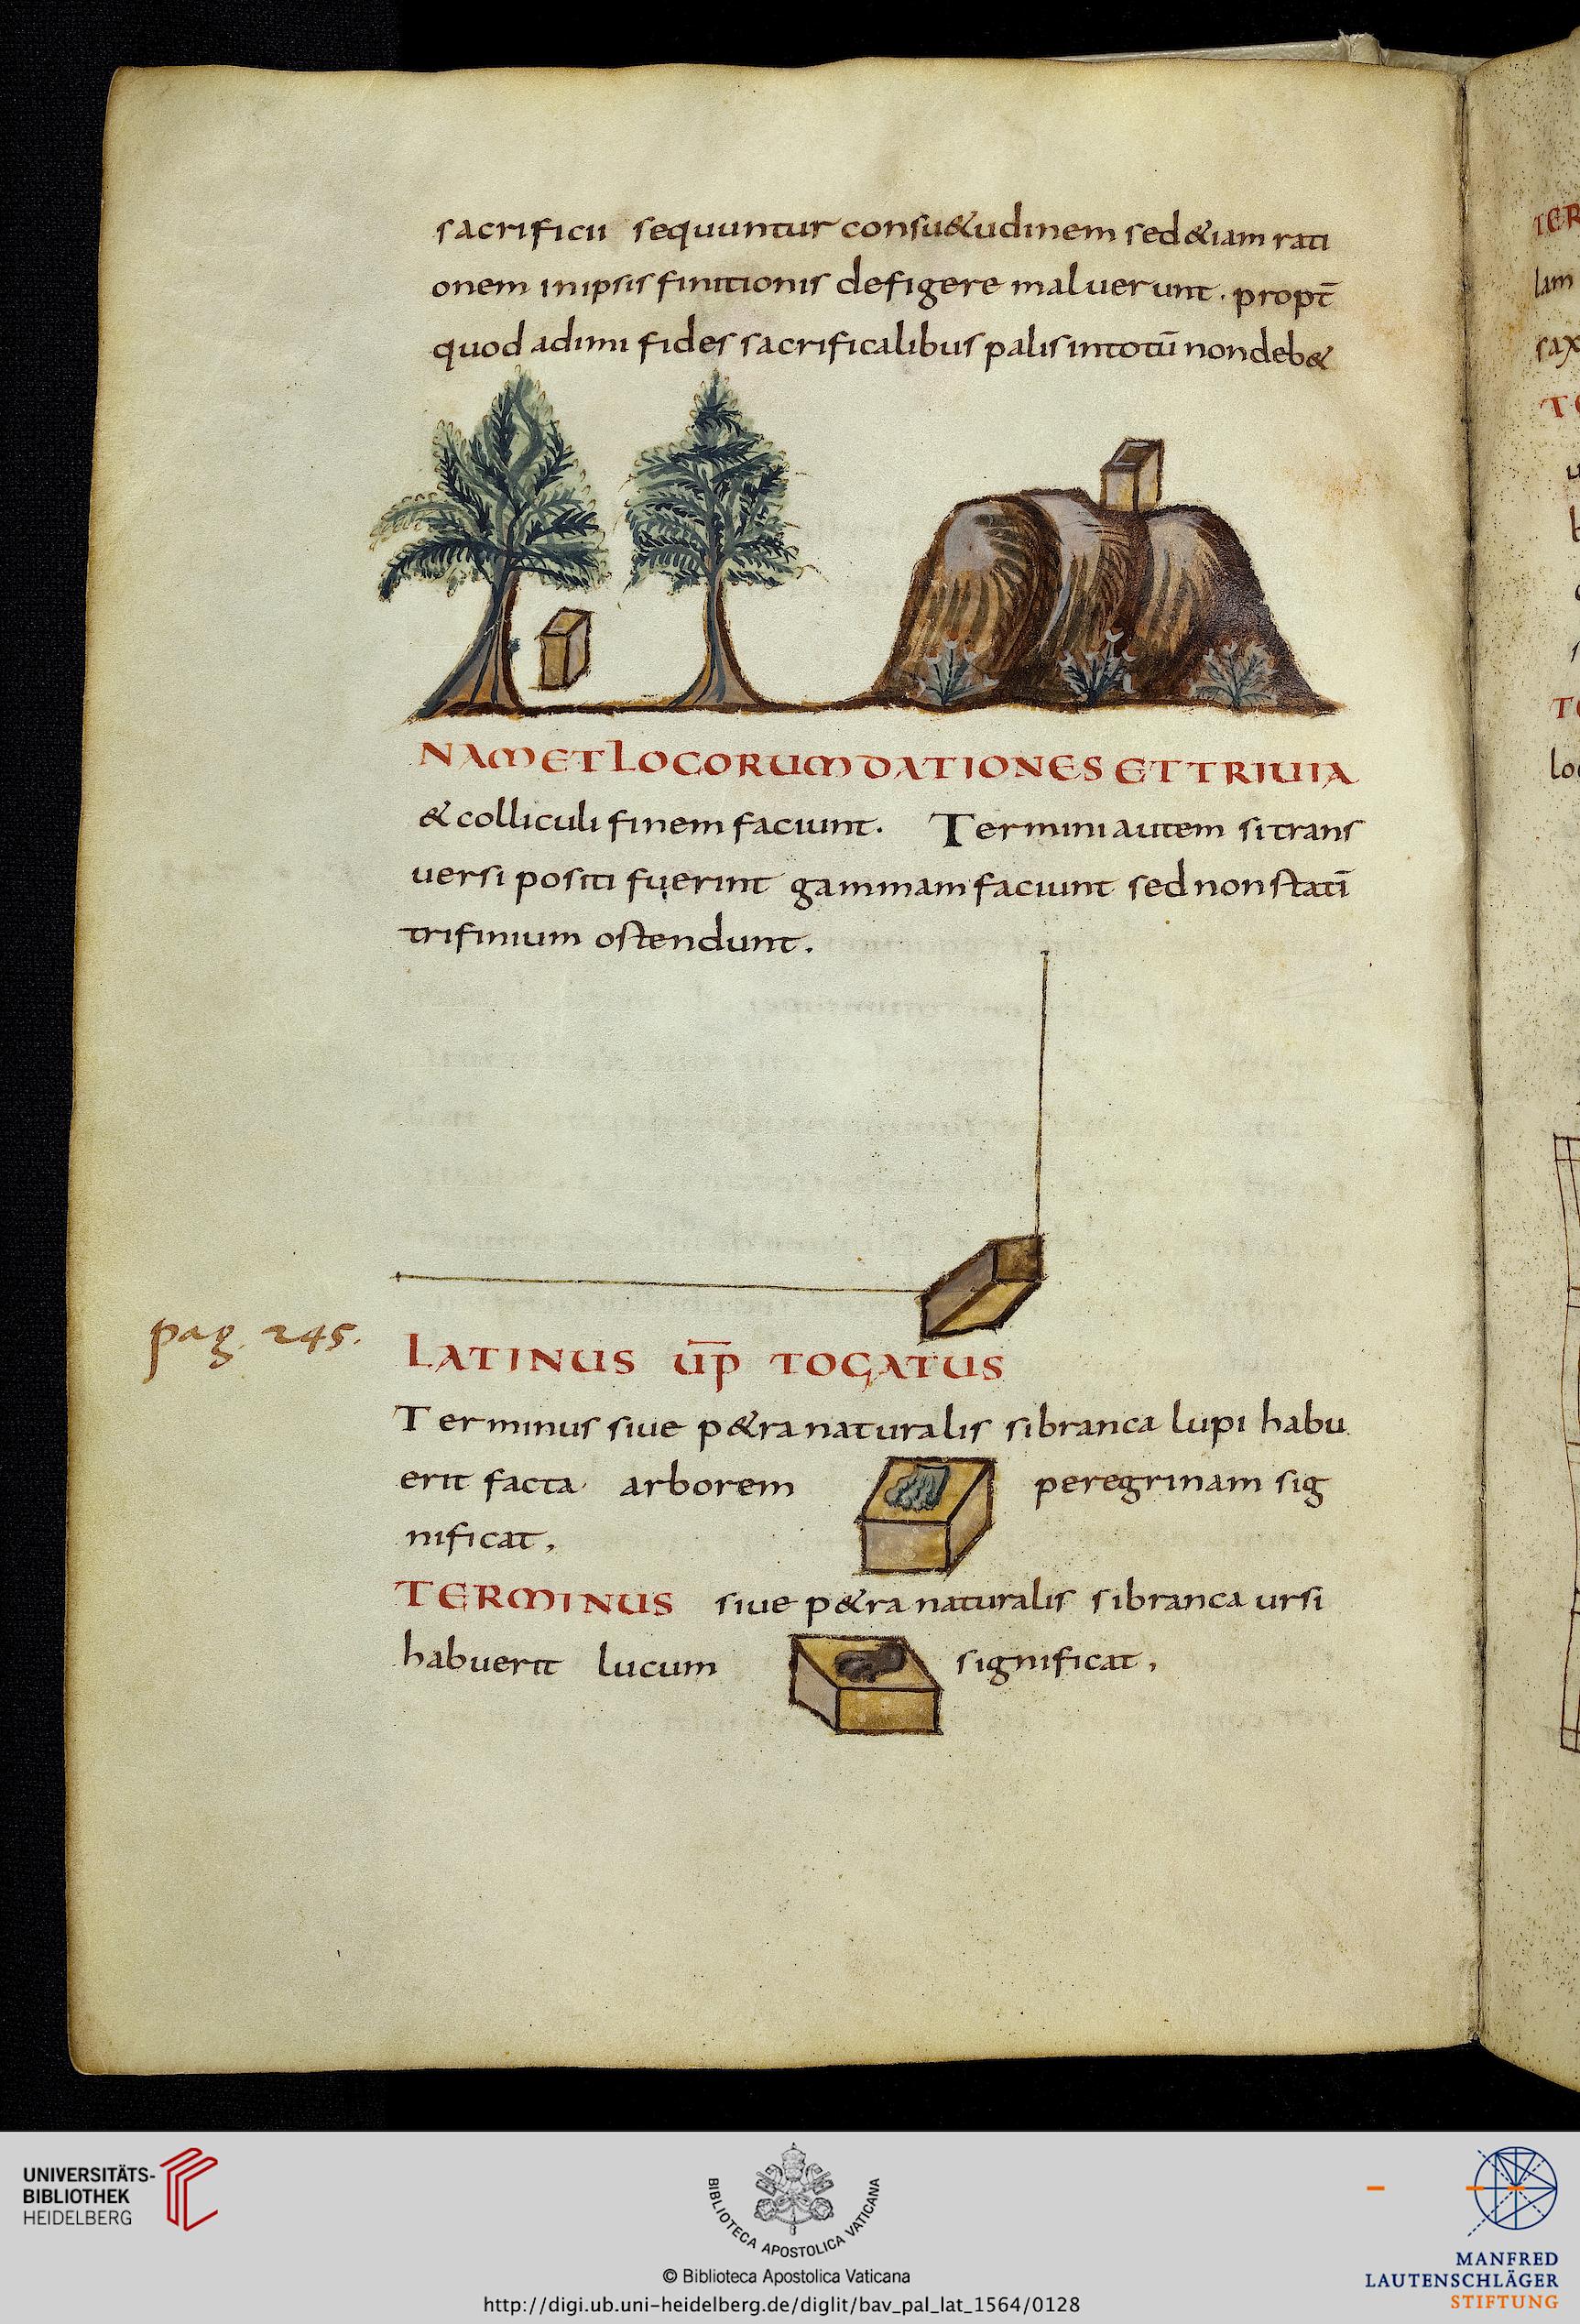 sacrificii sequuntur consu&udinem sed &iam rati
onem in ipsis finitionis defigere maluerunt. propt̄
quod adimi fides sacrificalibus palis in totū non deb&
NAM ET LOCORUM DATIONES ET TRIUIA
& colliculi finem faciunt. Termini autem si trans
uersi positi fuerint gammam faciunt sed non statī
trifinium ostendunt.
pag. 245.
LATINUS ūp̄ TOGATUS
Terminus siue p&ra naturalis si branca lupi habu
erit facta. arborem peregrinam sig
nificat,
TERMINUS siue p&ra naturalis si branca ursi
habuerit lucum significat,
TER
lam
sax
TE
lo
UNIVERSITÄTS-
BIBLIOTHEK
HEIDELBERG
BIBLIOTECA APOSTOLICA VATICANA
© Biblioteca Apostolica Vaticana
http://digi.ub.uni-heidelberg.de/diglit/bav_pal_lat_1564/0128
MANFRED
LAUTENSCHLÄGER
STIFTUNG